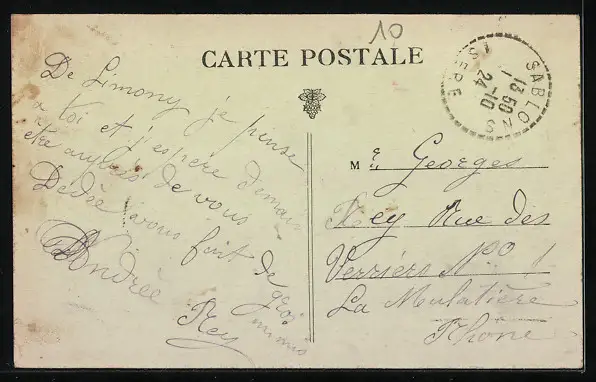 10
CARTE POSTALE
SABLONS
13 50
24-10
ISERE
De Limony je pense
a toi et j'espère demain
être auprès de vous
Dédée vous fait de gros
mimis
Andrée
Rey
M r Georges
Rey Rue des
Verriers N° 1
La Mulatière
Rhône